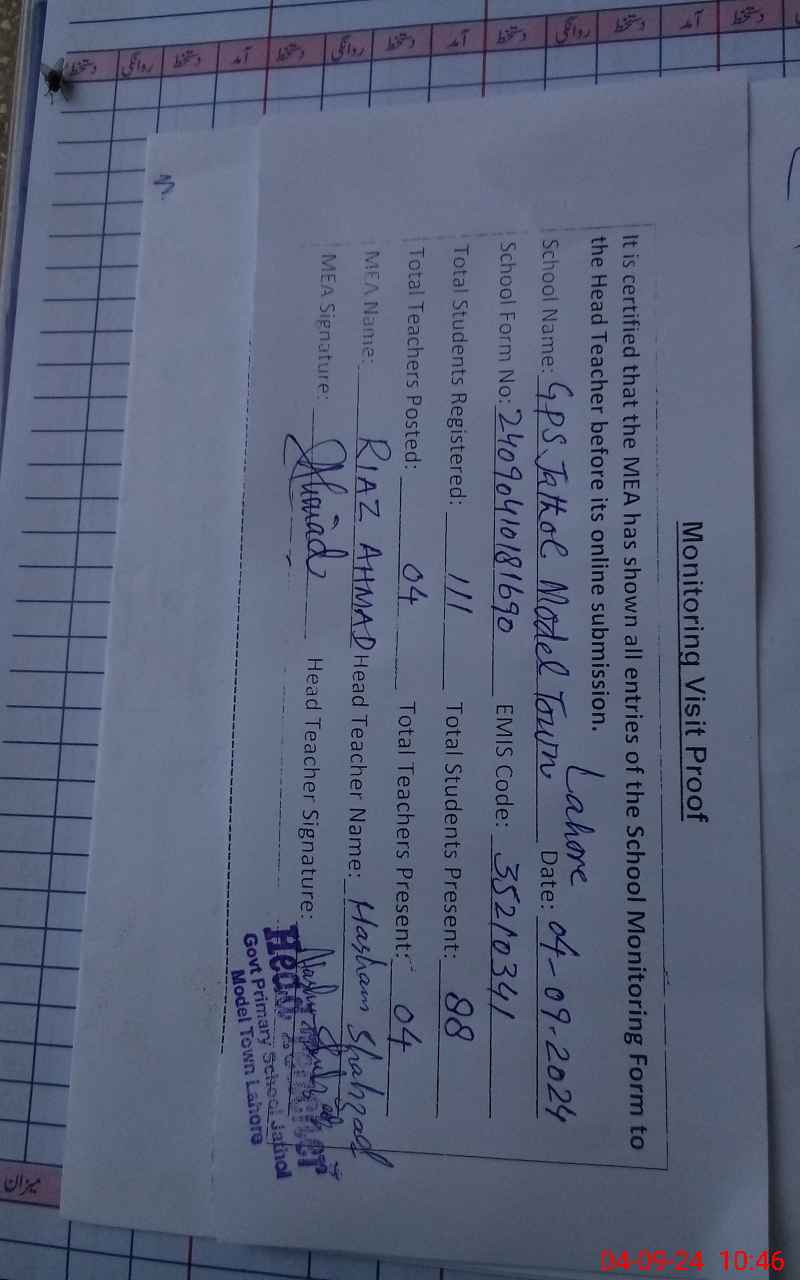 Monitoring Visit Proof
It is certified that the MEA has shown all entries of the School Monitoring Form to
the Head Teacher before its online submission.
School Name: GPS Jathol Model Town Lahore Date: 04-09-2024
School Form No: 24090410181690 EMIS Code: 35210341
Total Students Registered: 111 Total Students Present: 88
Total Teachers Posted: 04 Total Teachers Present: 04
MEA Name: RIAZ AHMAD Head Teacher Name: Hasham Shahzad
MEA Signature: Ahmad Head Teacher Signature:
Head Teacher
Govt Primary School Jathol
Model Town Lahore
میزان
04-09-24 10:46